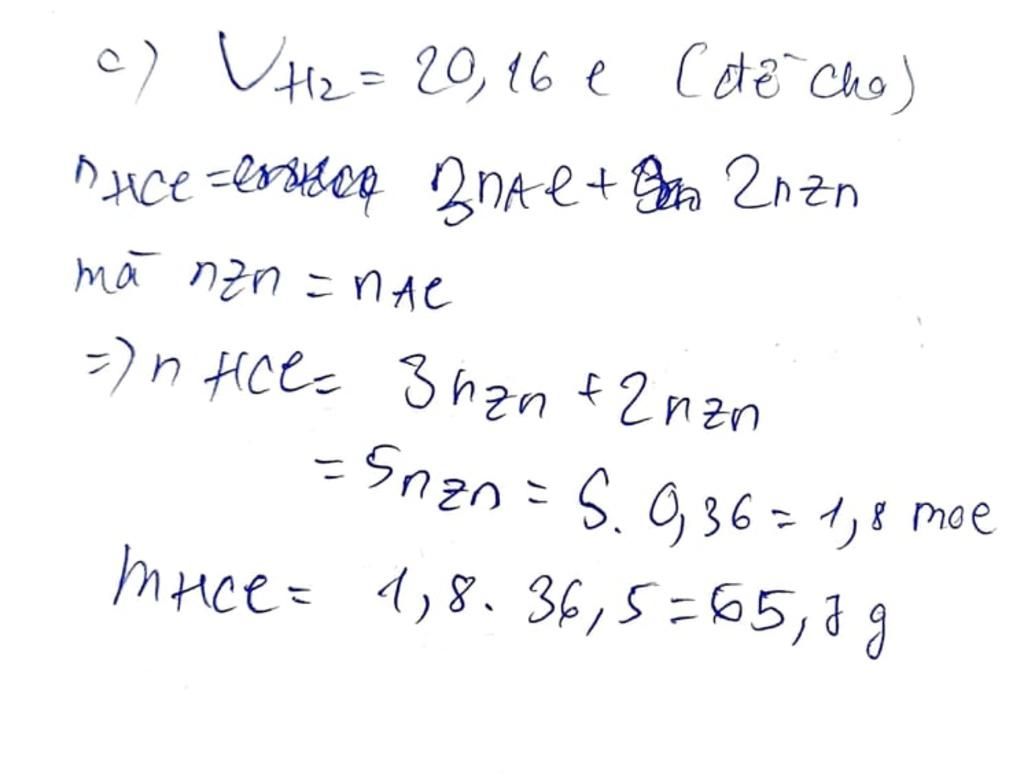 c) VH2 = 20,16 l (đề cho)
nHCl = 3nAl + 2nZn
mà nZn = nAl
=> nHCl = 3nZn + 2nZn
= 5nZn = 5. 0,36 = 1,8 mol
mHCl = 1,8. 36,5 = 65,7 g